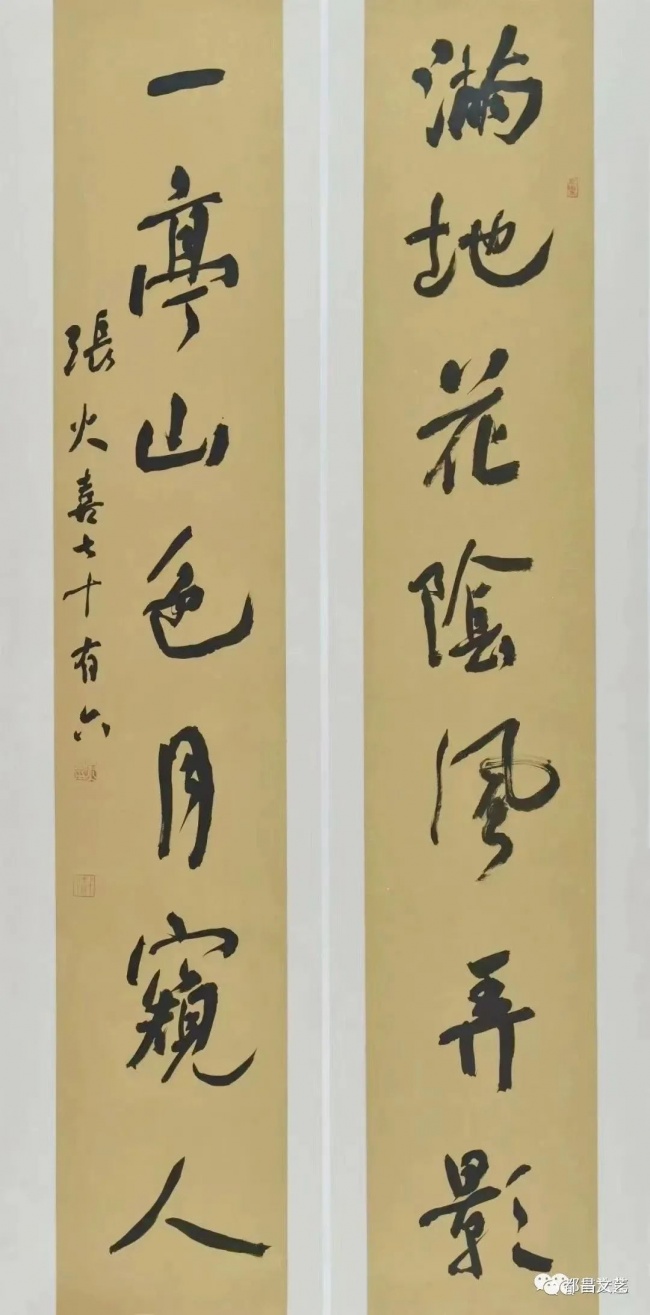 滿地花陰風弄影
一亭山色月窺人
張火喜七十有六
都昌文艺